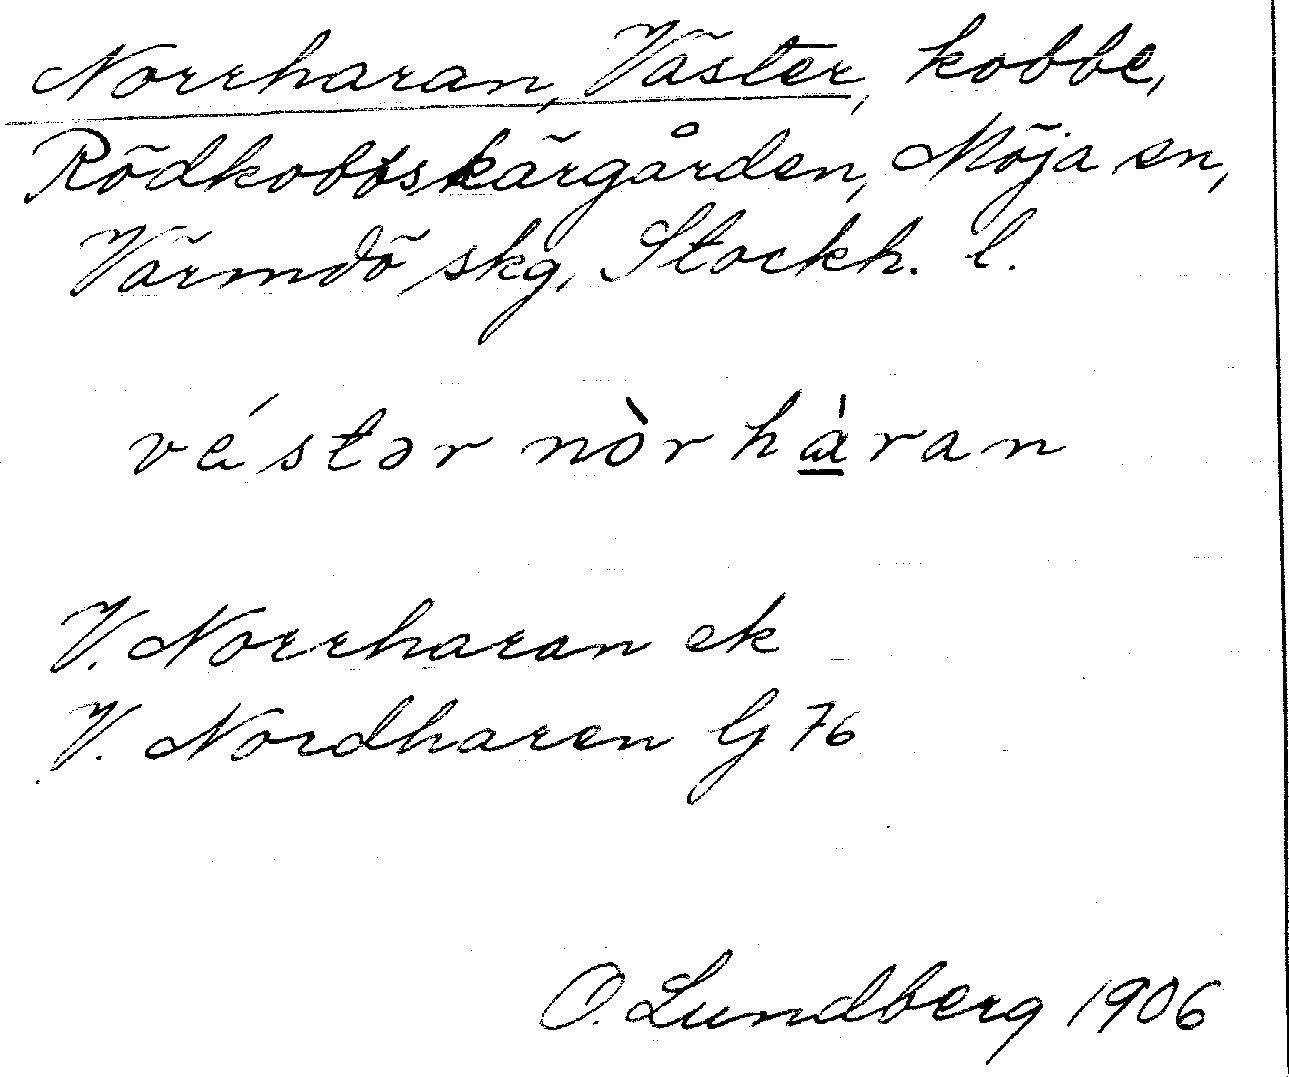 Norrharan, Väster, kobbe,
Rödkobbskärgården, Möja sn,
Värmdö skg, Stockh. l.
véstər nòrhàran
V. Norrharan ek
V. Nordharen Gj 76
O. Lundberg 1906